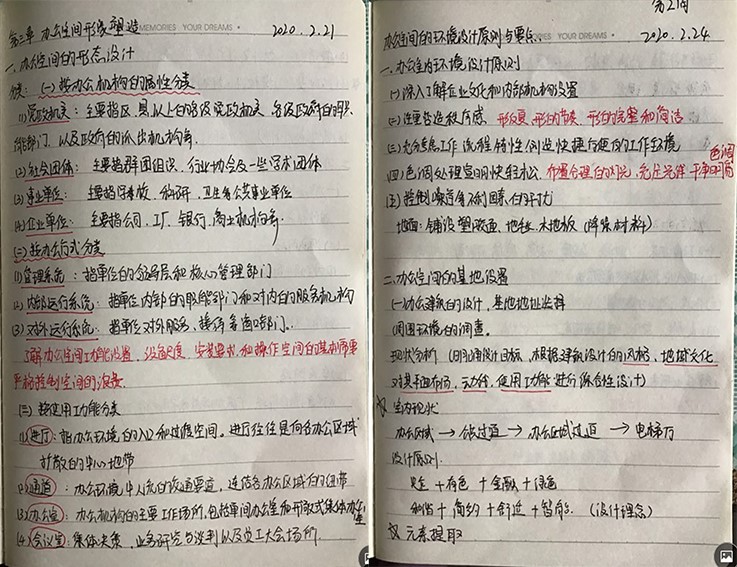 第三章 办公空间形象塑造
MEMORIES YOUR DREAMS
2020.2.21
一、办公空间的形态设计
分类：(一)按办公机构的属性分类
(1)党政机关：主要指区、县以上的各级党政机关、各级政府的职
能部门、以及政府的派出机构等.
(2)社会团体：主要指群团组织、行业协会及一些学术团体
(3)事业单位：主要指学校、科研、卫生等公共事业单位
(4)企业单位：主要指公司、工厂、银行、商业机构等.
(二)按办公行式分类
(1)管理系统：指单位的领导层和核心管理部门
(2)内部运行系统：指单位内部的职能部门和对内的服务机构
(3)对外运行系统：指单位对外服务、接待、的部门.
了解办公空间功能设置、设备尺度、安装要求和操作空间的基本需要
严格控制空间的浪费
(三)按使用功能分类
(1)进厅：指办公环境的入口和过渡空间。进厅往往是向各办公区域
扩散的中心地带
(2)通道：办公环境中人流的交通要道，连结各办公区域的纽带
(3)办公室：办公机构的主要工作场所，包括单间办公室和开敞式集体办公室
(4)会议室：集体决策、业务研究与谈判以及员工大会场所.
第2周
办公空间的环境设计原则与要点.
MEMORIES YOUR DREAMS
2020.2.24.
一、办公室内环境设计原则
(一)深入了解企业文化和内部机构设置
(二)注重营造秩序感、形的反复、形的节奏、形的完整和简洁
(三)充分考虑工作流程特性创造快捷方便的工作环境
(四)色调处理宜明快轻松、布置合理的灯光、充足光洋、干净明简
色调
(五)控制噪音等不利因素的干扰
地面：铺设塑胶面、地毯、木地板 (降噪材料)
二、办公空间的基地设置
(一)办公建筑的设计、基地地址选择
周围环境的调查.
现状分析 (明确设计目标、根据建筑设计的风格、地域文化
对其平面布局、动线、使用功能进行综合性设计)
室内现状
办公区域 → 公共过道 → 办公区域过道 → 电梯厅
设计原则.
安全 + 本色 + 金融 + 绿色
科技 + 简约 + 舒适 + 智能. (设计理念)
元素提取